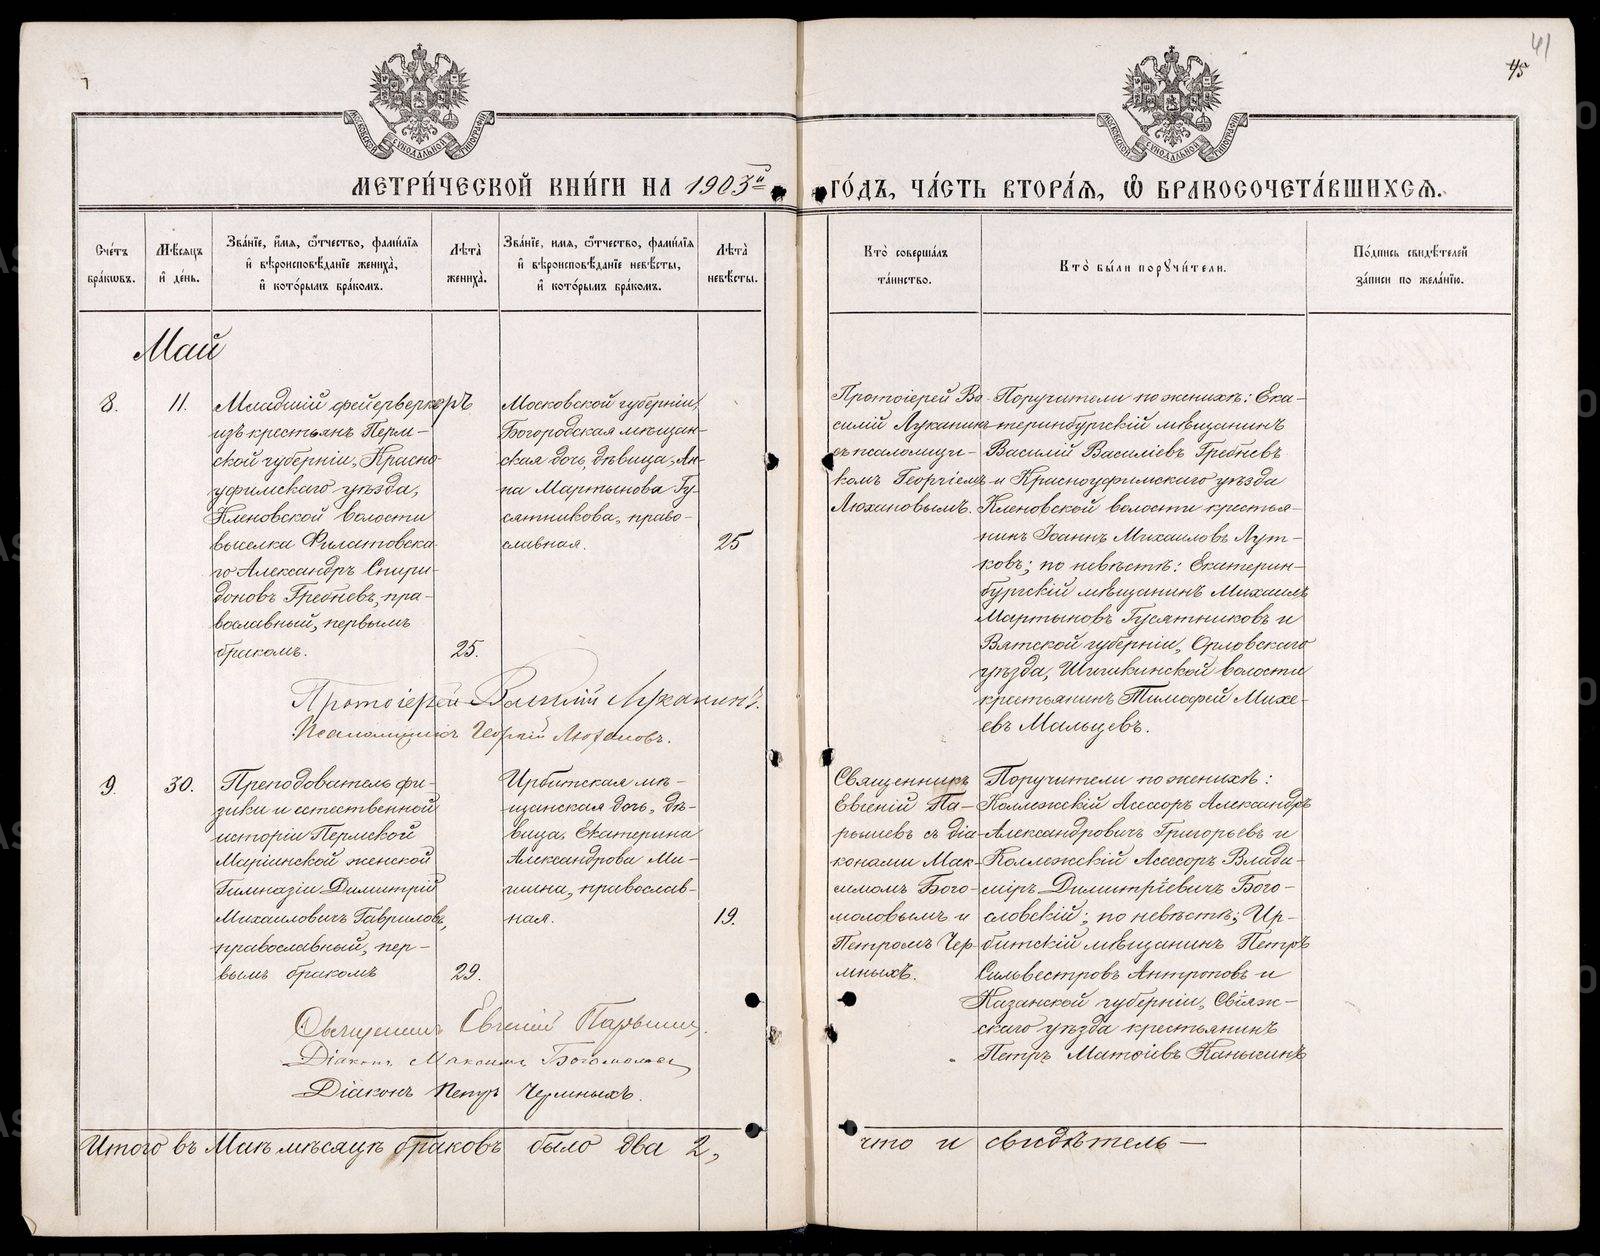 41
45
МОСКОВСКОЙ СѴНОДАЛЬНОЙ ТИПОГРАФІИ
МОСКОВСКОЙ СѴНОДАЛЬНОЙ ТИПОГРАФІИ
МЕТРИ́ЧЕСКОЙ КНИ́ГИ НА 1903й
ГО́ДЪ, ЧА́СТЬ ВТОРА́Я, Ѽ БРАКОСОЧЕТА́ВШИХСЯ.
Сче́тъ
бра́ковъ.
Мѣ́сяцъ
и҆ де́нь.
Зва́нїе, и҆́мя, ѻ҆́тчество, фамилїя
и҆ вѣроисповѣ́данїе жениха̀,
и҆ кото́рымъ бра́комъ.
Лѣта̀
жениха̀.
Зва́нїе, имя, ѻ҆́тчество, фамилїя
и҆ вѣроисповѣ́данїе невѣ́сты,
и҆ кото́рымъ бра́комъ.
Лѣта̀
невѣ́сты.
Кто̀ соверша́лъ
та́инство.
Кто̀ бы́ли порꙋчи́тели.
По́дпись свидѣ́телей
за́писи по жела́нїю.
Май
8.
11.
Младшій фейерверкеръ
изъ крестьянъ Перм-
ской губерніи, Красно-
уфимскаго уѣзда,
Кленовской волости
выселка Филатовска-
го Александръ Спири-
доновъ Гребневъ, пра-
вославный, первымъ
бракомъ.
25.
Московской губерніи,
Богородская мѣщан-
ская дочь, дѣвица, Ан-
на Мартынова Гу-
сятникова, право-
славная.
25
Протоіерей Ва-
силій Луканинъ
съ псаломщи-
комъ Георгіемъ
Люхановымъ.
Поручители по женихѣ: Ека-
теринбургскій мѣщанинъ
Василій Василіевъ Гребневъ
и Красноуфимскаго уѣзда
Кленовской волости крестья-
нинъ Іоаннъ Михаиловъ Лут-
ковъ; по невѣстѣ: Екатерин-
бургскій мѣщанинъ Михаилъ
Мартыновъ Гусятниковъ и
Вятской губерніи, Орловскаго
уѣзда, Шишкинской волости
крестьянинъ Тимофей Михе-
евъ Мальцевъ.
Протоіерей Василій Луканинъ.
Псаломщикъ Георгій Люхановъ.
9.
30.
Преподователь фи-
зики и естественной
исторіи Пермской
Маріинской женской
Гимназіи Димитрій
Михаиловичъ Гавриловъ,
православный, пер-
вымъ бракомъ
29.
Ирбитская мѣ-
щанская дочь, дѣ-
вица, Екатерина
Александрова Ми-
шина, православ-
ная.
19.
Священникъ
Евгеній Па-
рышевъ съ діа-
конами Мак-
симомъ Бого-
моловымъ и
Петромъ Чер-
мныхъ.
Поручители по женихѣ:
Коллежскій Ассесоръ Александръ
Александровичъ Григорьевъ и
Коллежскій Ассесоръ Влади-
міръ Димитріевичъ Бого-
словскій; по невѣстѣ; Ир-
битскій мѣщанинъ Петръ
Сильвестровъ Антроповъ и
Казанской губерніи, Свіяж-
скаго уѣзда крестьянинъ
Петръ Матѳіевъ Канышнъ
Священникъ Евгеній Парышевъ.
Діаконъ Максимъ Богомоловъ
Діаконъ Петръ Чермныхъ.
Итого въ Маѣ мѣсяцѣ браковъ было два 2,
что и свидѣтель—